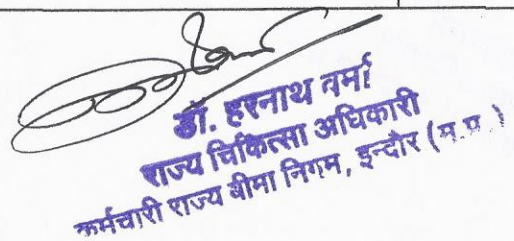 डॉ. हरनाथ वर्मा
राज्य चिकित्सा अधिकारी
कर्मचारी राज्य बीमा निगम, इन्दौर (म.प्र.)